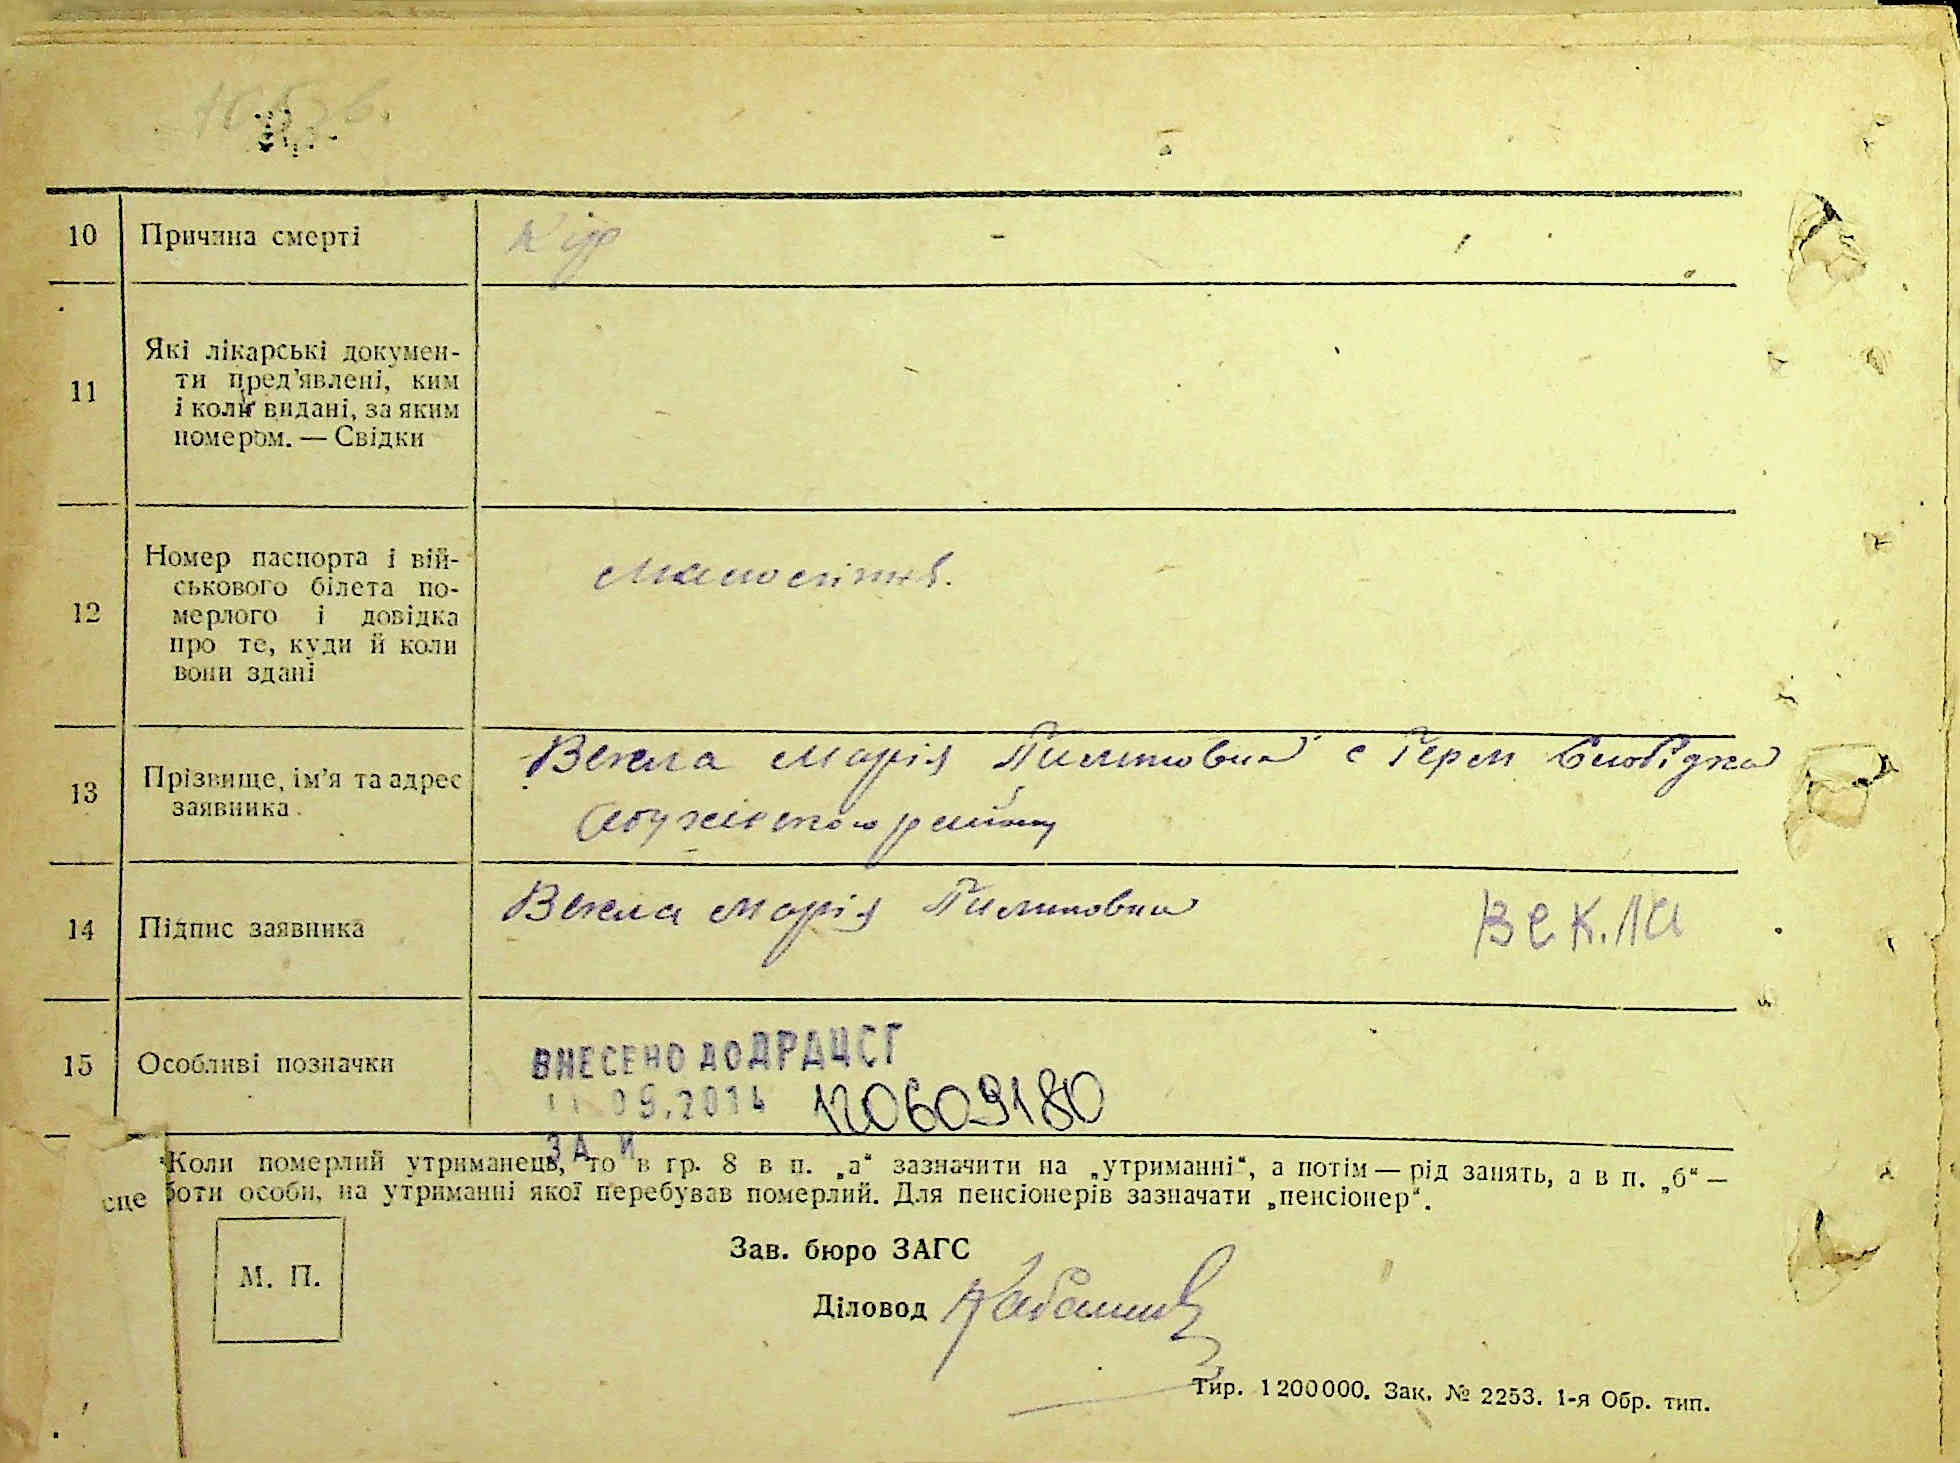 10 Причина смерті Кір
11 Які лікарські докумен-
ти пред'явлені, ким
і коли видані, за яким
номером. — Свідки
12 Номер паспорта і вій-
ськового білета по-
мерлого і довідка
про те, куди й коли
вони здані
малолітня.
13 Прізвище, ім'я та адрес
заявника.
Векла Марія Пилиповна с Герм Слобідка
району
14 Підпис заявника Векла Марія Пилиповна Векла
15 Особливі позначки
ВНЕСЕНО ДО ДРАЦСГ
09.2014 120609180
ЗА И
Коли померлий утриманець, то в гр. 8 в п. „а“ зазначити на „утриманні“, а потім — рід занять, а в п. „б“ —
сце боти особи, на утриманні якої перебував померлий. Для пенсіонерів зазначати „пенсіонер“.
М. П.
Зав. бюро ЗАГС
Діловод
Тир. 1200000. Зак. № 2253. 1-я Обр. тип.